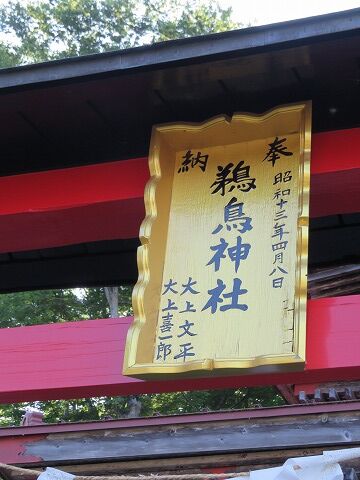 奉納
昭和十三年四月八日
鵜鳥神社
大上文平
大上喜一郎